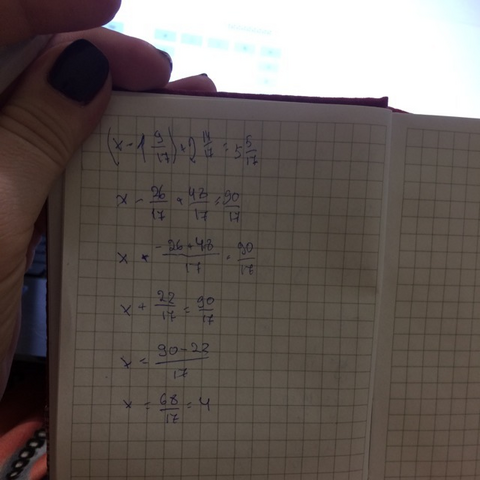 (x - 1 9/17) + 2 14/17 = 5 5/17
x - 26/17 + 48/17 = 90/17
x + -26+48/17 = 90/17
x + 22/17 = 90/17
x = 90-22/17
x = 68/17 = 4